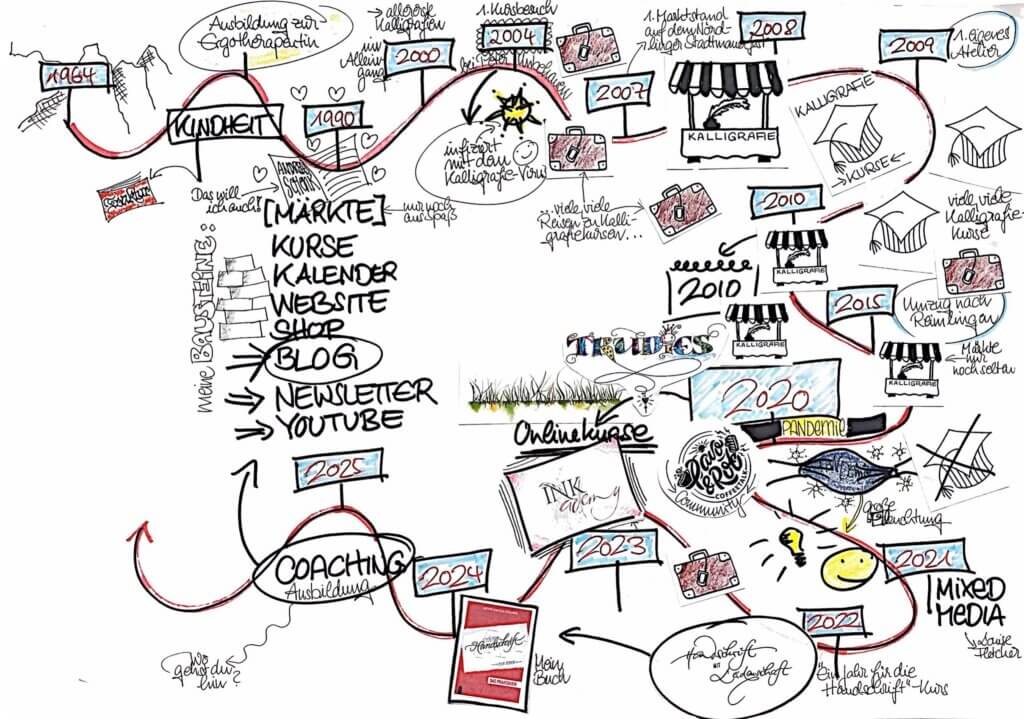 1964
Ausbildung zur
Ergotherapeutin
KINDHEIT
Das will
ich auch!
1990
→ allererste
Kalligrafien
im
Allein
gang
2000
1. Kursbesuch
2004
infiziert
mit dem
Kalligrafie-Virus
viele viele
Reisen zu Kalli-
grafiekursen...
2007
1. Marktstand
auf dem Nörd-
linger Stadtmauerfest
2008
KALLIGRAFIE
2009
1. eigenes
Atelier
KALLIGRAFIE
→ KURSE ←
viele viele
Kalligrafie-
Kurse
2010
KALLIGRAFIE
2010
KALLIGRAFIE
2015
Umzug nach
Reimlingen
KALLIGRAFIE
Märkte
nur
noch selten
TRUDIES
2020
PANDEMIE
Onlinekurse
Community
große
Erleuchtung
2021
MIXED
MEDIA
Louise
Fletcher
2022
"Ein Jahr für die
Handschrift"-Kurs
Handschrift
mit
Leidenschaft
INK
2023
Handschrift
Mein
Buch
2024
COACHING
Ausbildung
2025
Wo
gehst du
hin?
meine BAUSTEINE:
[MÄRKTE] ← nur noch
aus Spaß
KURSE
KALENDER
WEBSITE
SHOP
⇒ BLOG
⇒ NEWSLETTER
⇒ YOUTUBE